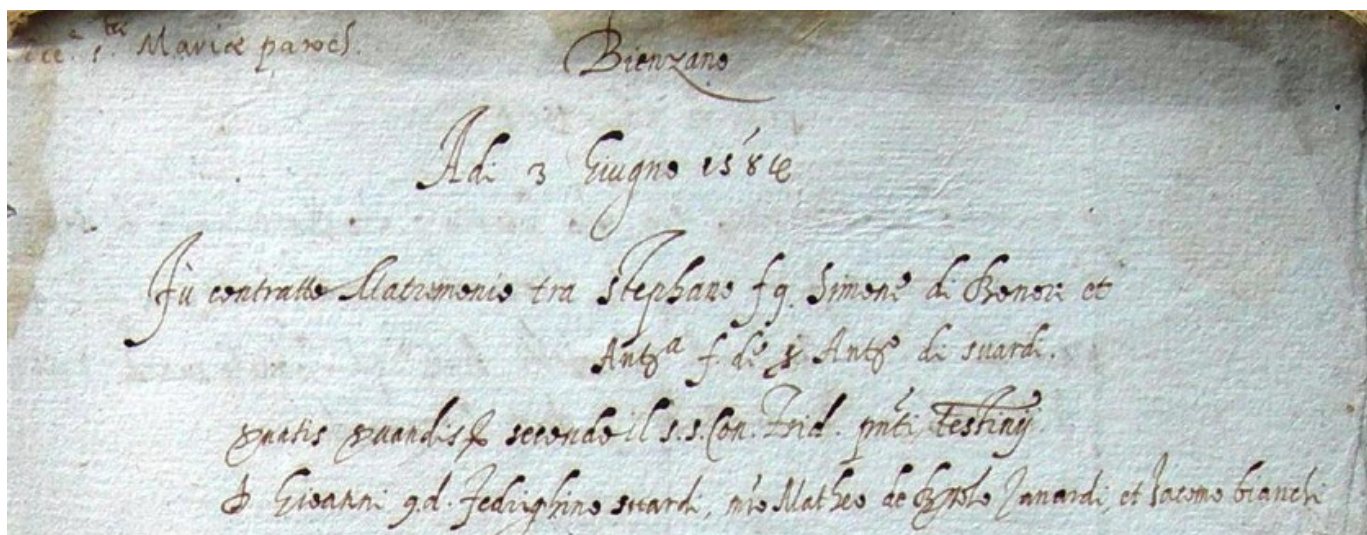 Mariæ paroch.
Bienzano
Adi 3 Giugno 158
Fù contratto Matrimonio tra Stephano f q. Simone di Bonori et
Ant.ª f. de Ant.º di suardi.
seruatis seruandis secondo il s.s. Con. Trid. pnti testimij
Gioanni q.d. Fedrighino suardi, mro Matheo de Zanardi, et Iacomo bianchi